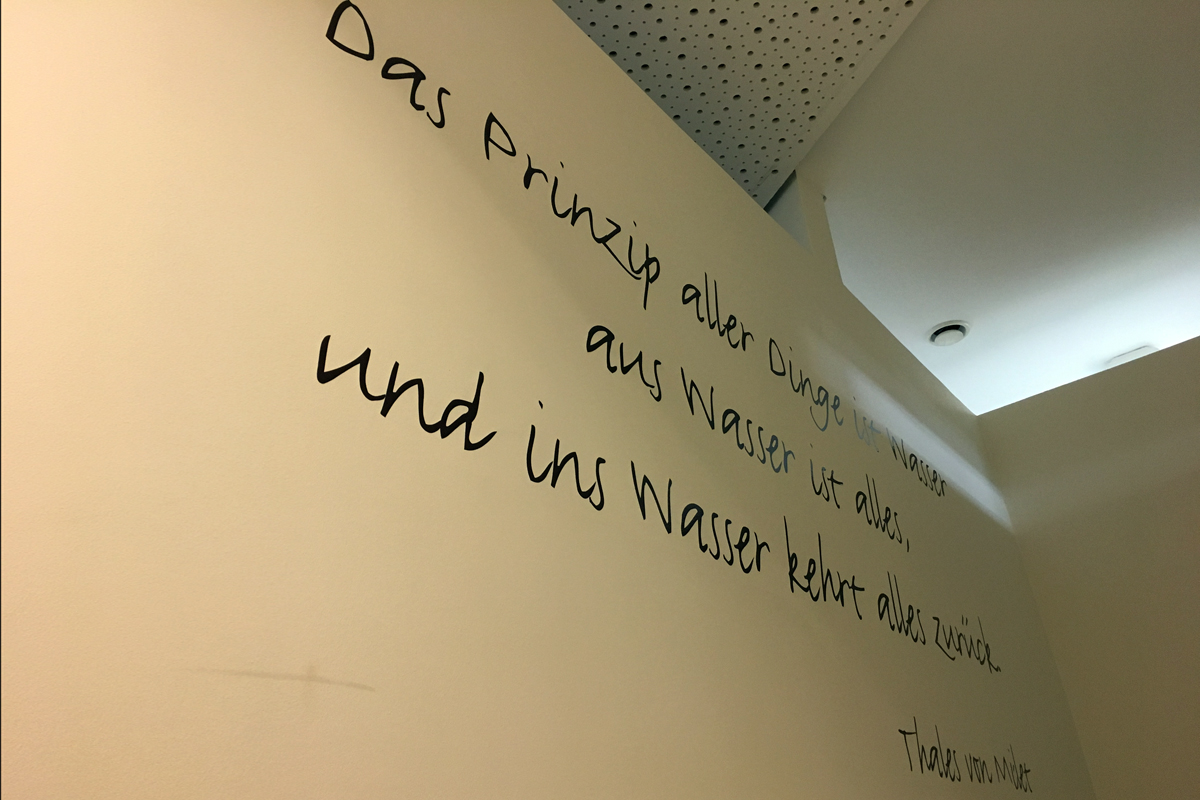 Das Prinzip aller Dinge ist Wasser
aus Wasser ist alles,
und ins Wasser kehrt alles zurück.
Thales von Milet